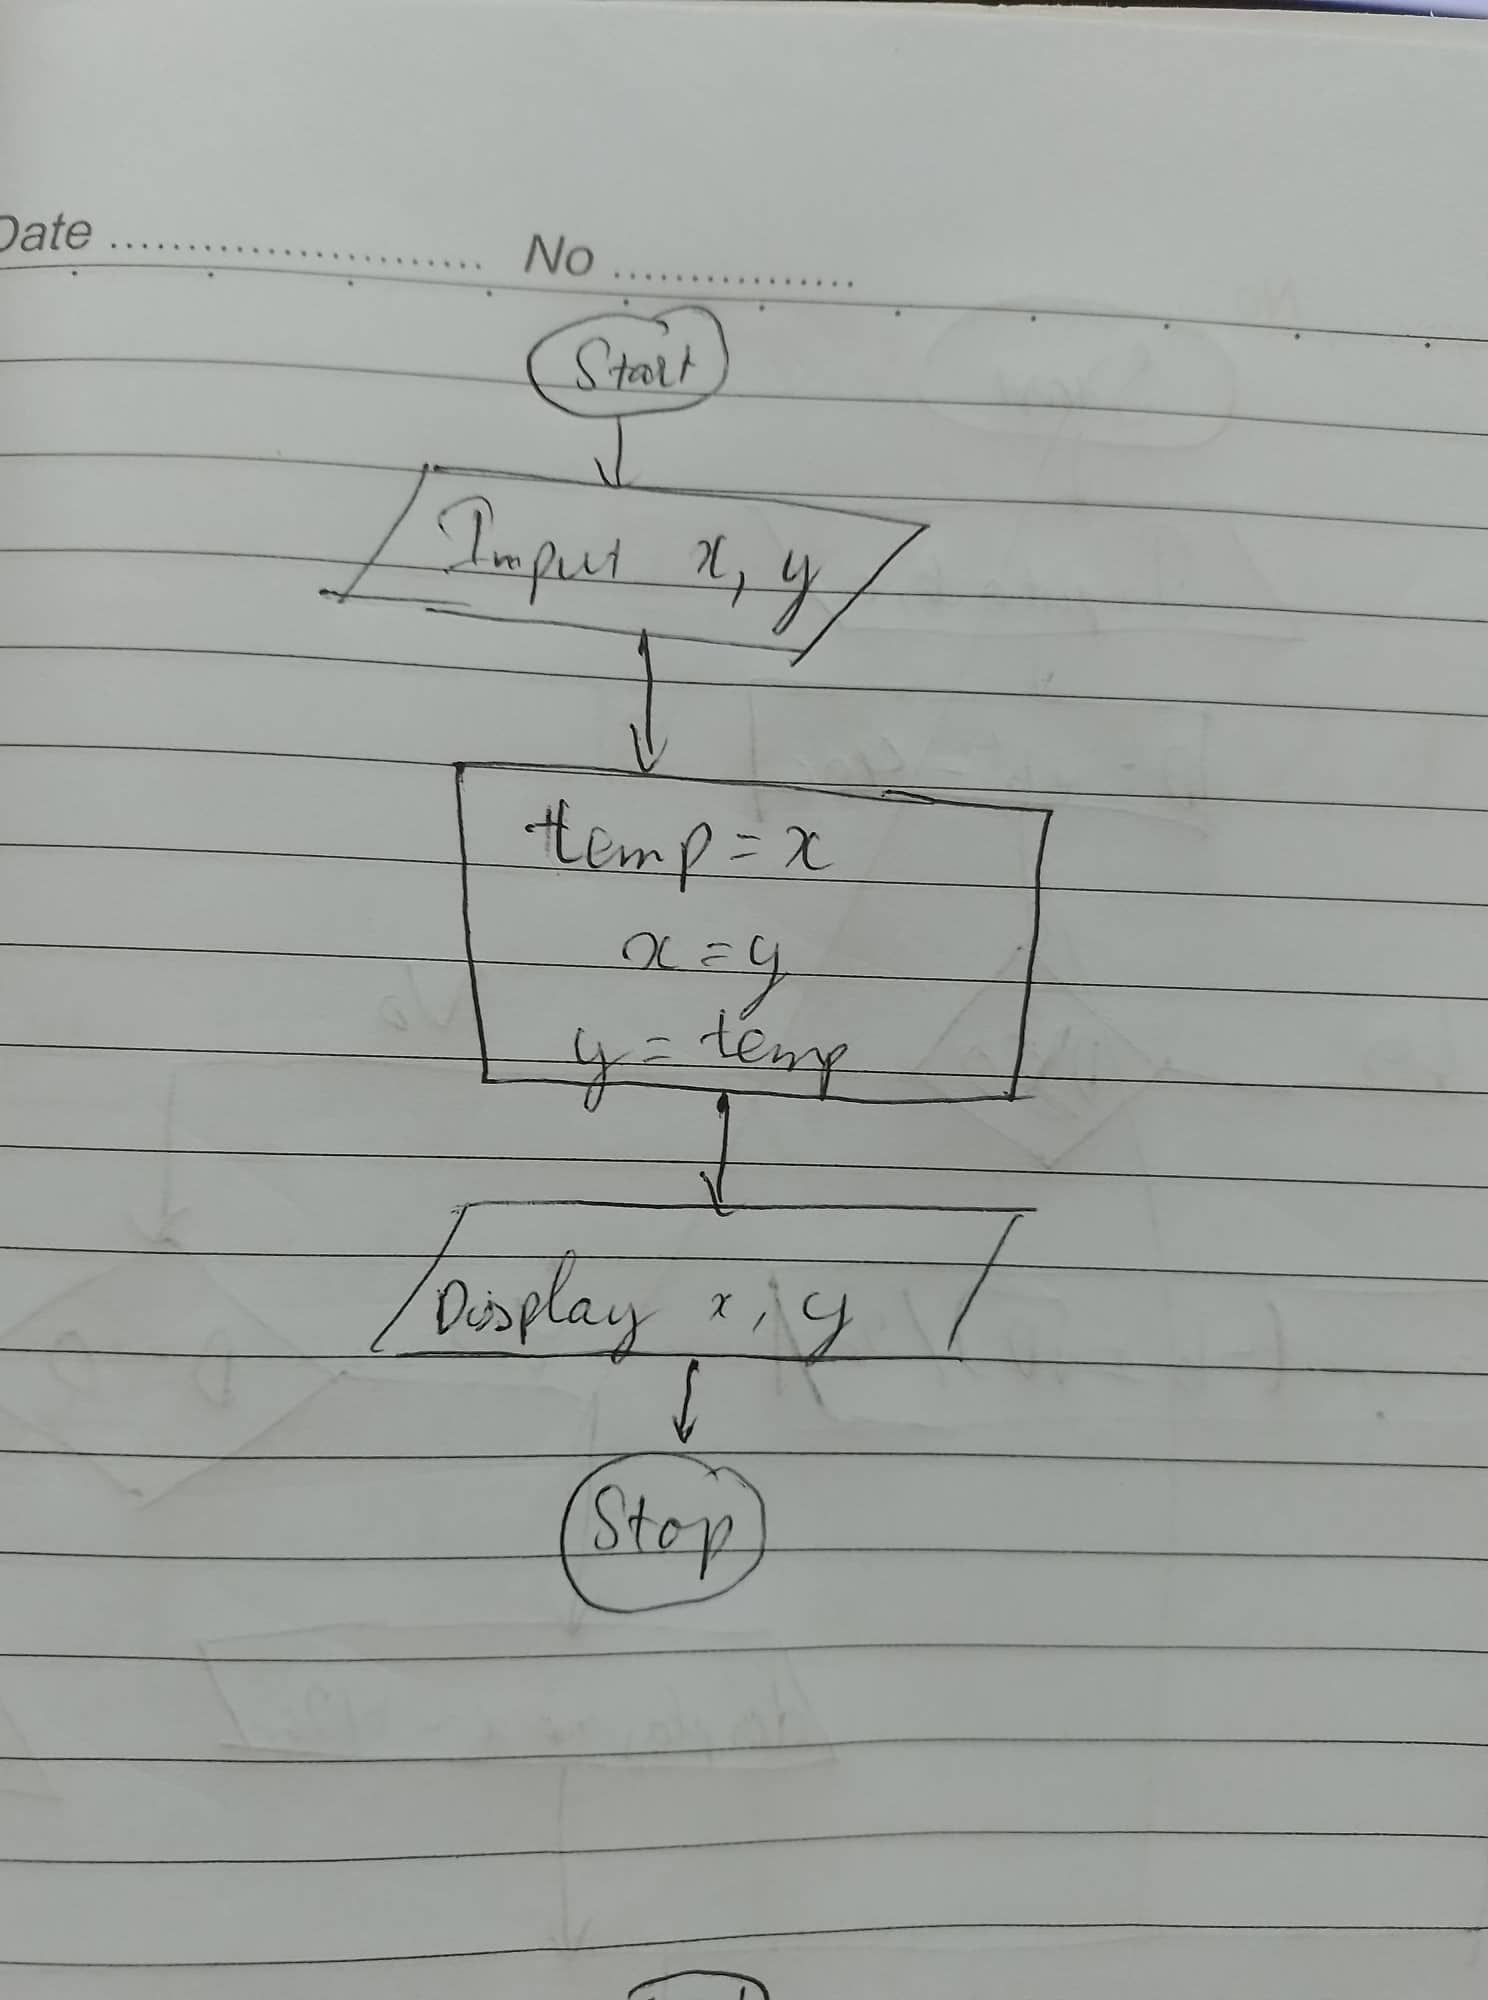 Date ........................... No .................
Start
Input x, y
temp = x
x = y
y = temp
Display x, y
Stop